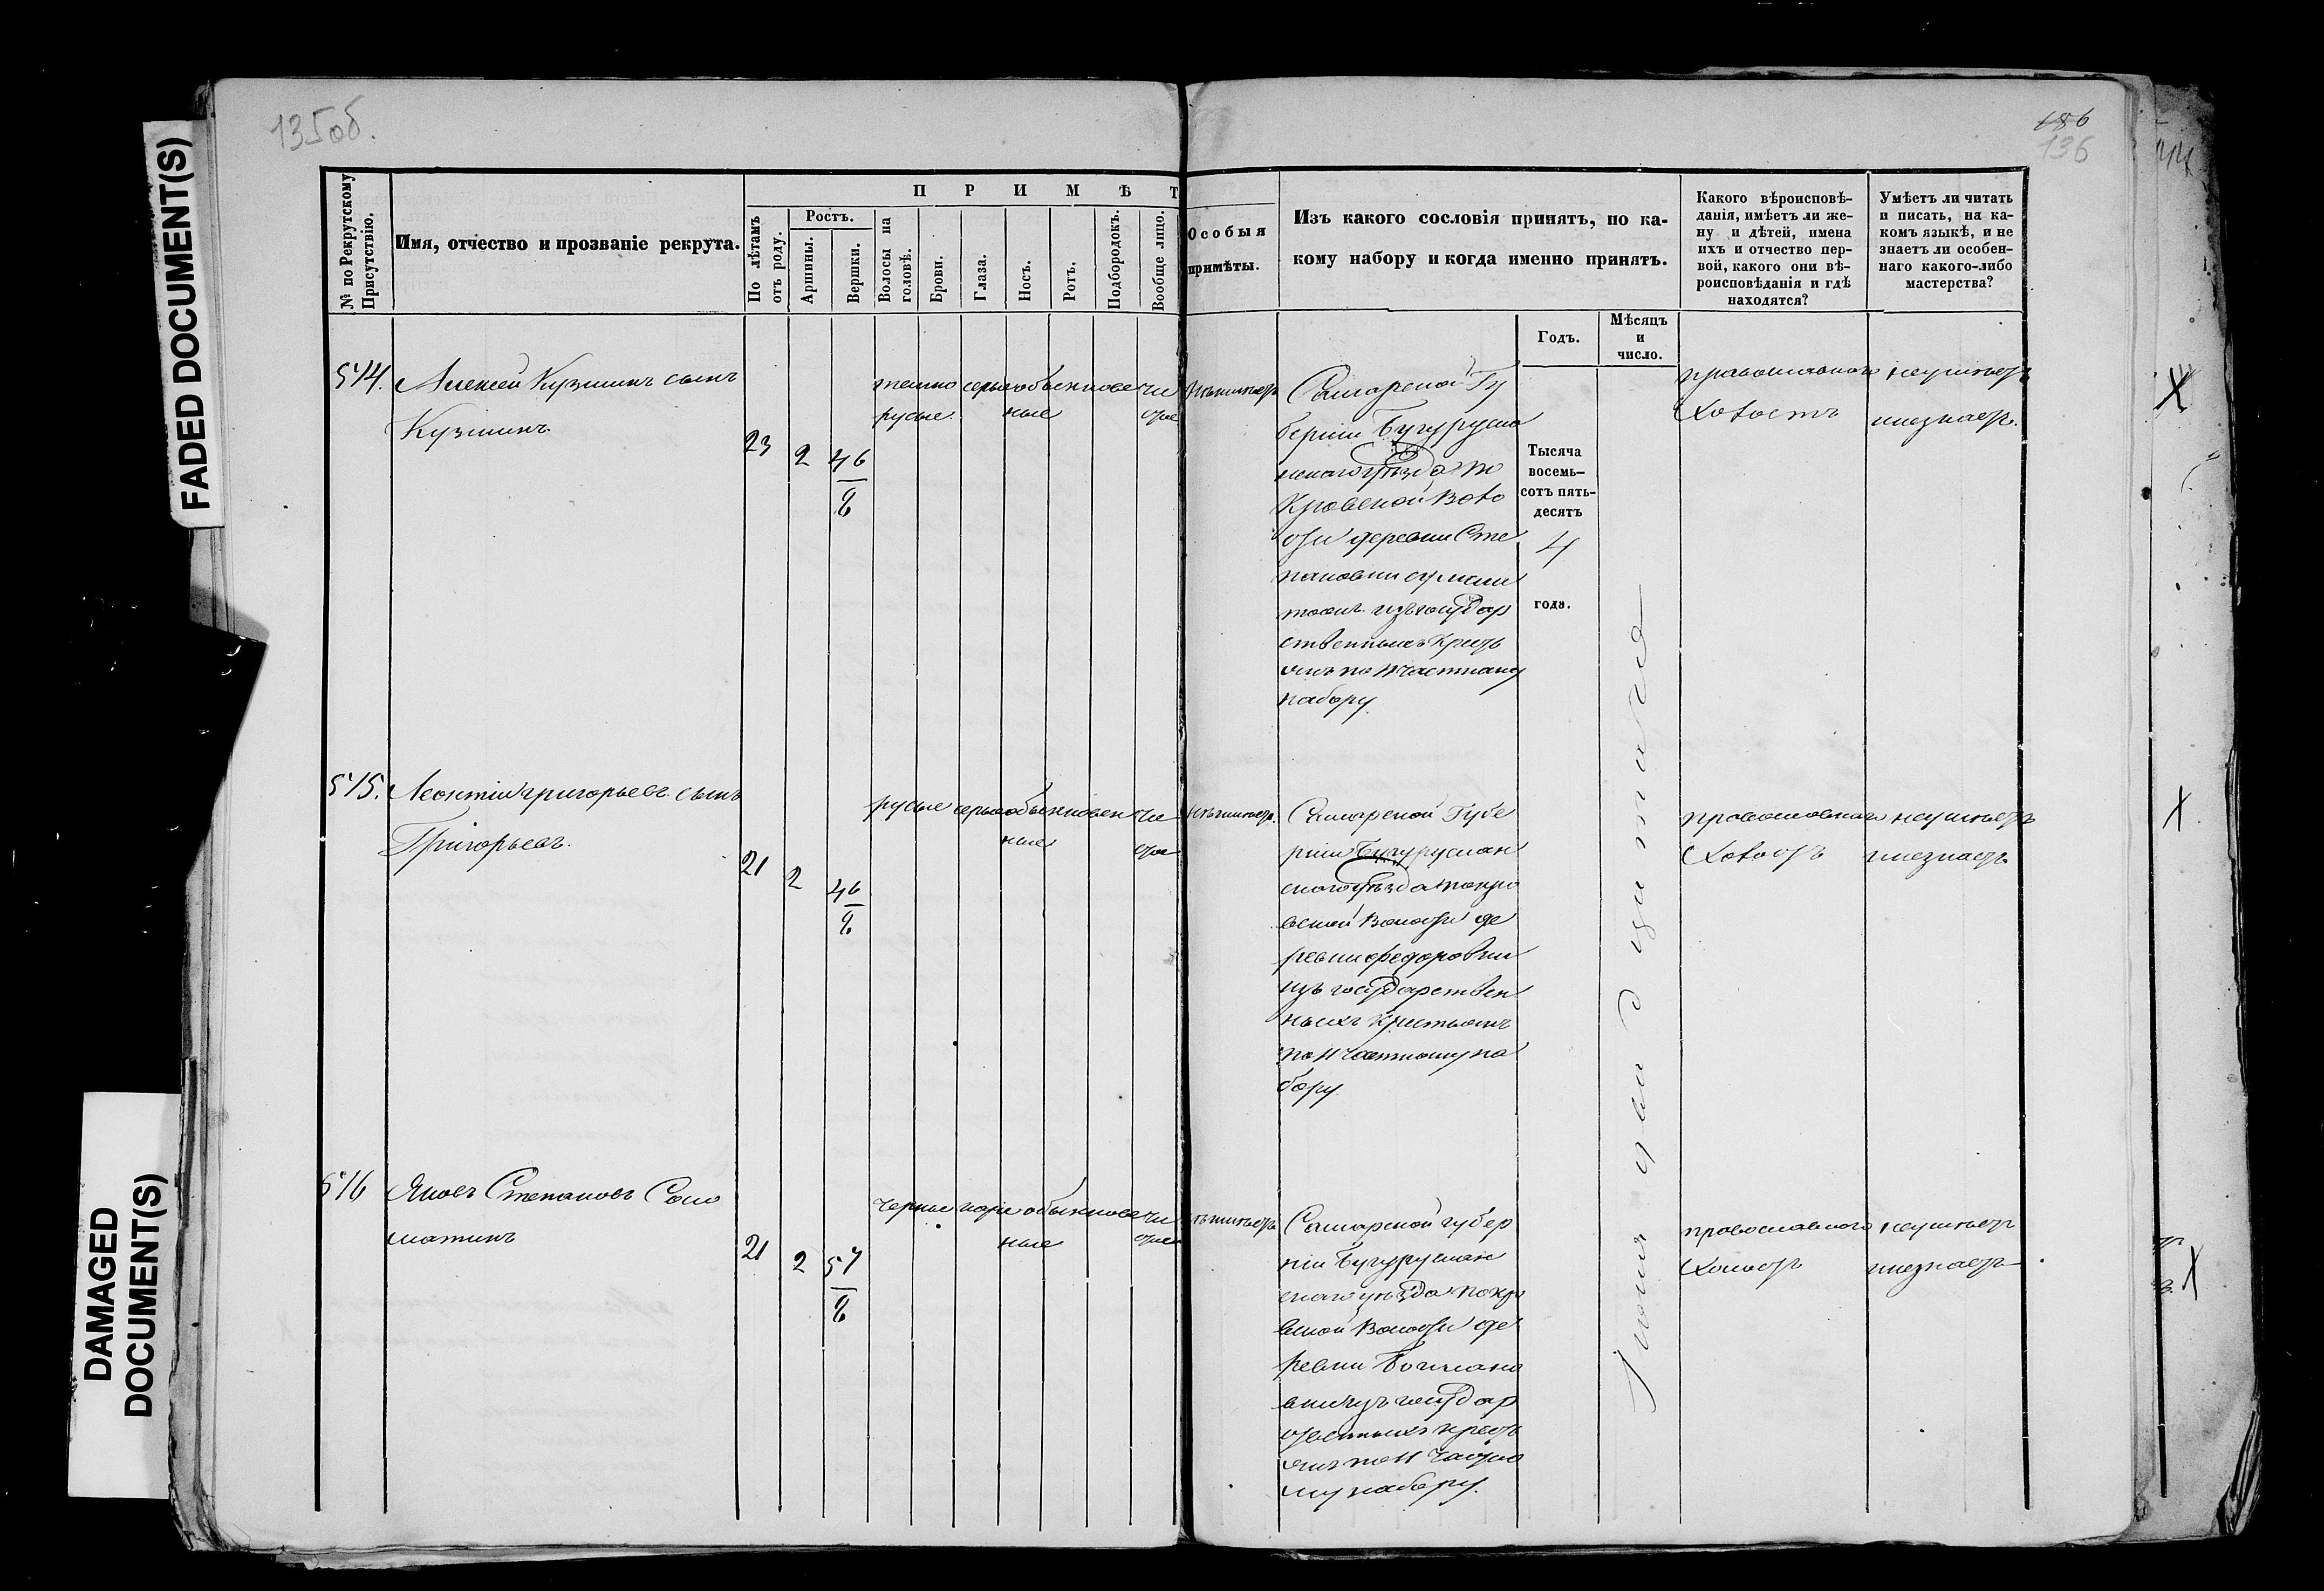 FADED DOCUMENT(S)
DAMAGED
DOCUMENT(S)
135об.
186
136
№ по Рекрутскому
Присутствію.
Имя, отчество и прозваніе рекрута.
П Р И М Ѣ Т
По лѣтамъ
отъ роду.
Ростъ.
Аршины.
Вершки.
Волосы на
головѣ.
Брови.
Глаза.
Носъ.
Ротъ.
Подбородокъ.
Вообще лицо.
Особыя
примѣты.
Изъ какого сословія принятъ, по ка-
кому набору и когда именно принятъ.
Какого вѣроисповѣ-
данія, имѣетъ ли же-
ну и дѣтей, имена
ихъ и отчество пер-
вой, какого они вѣ-
роисповѣданія и гдѣ
находятся?
Умѣетъ ли читать
и писать, на ка-
комъ языкѣ, и не
знаетъ ли особен-
наго какого-либо
мастерства?
Годъ.
Мѣсяцъ
и
число.
Тысяча
восемь-
сотъ пять-
десятъ
4
года.
514.
Алексей Кузминъ сынъ
Кузминъ
23
2
4 6/8
темно
русые
серые
обыкнове
ные
чи
стое
Самарской Гу
берніи Бугурусла
нскаго уѣзда По
кровской Воло
сти деревни Сте
пановки
изъ государ
ственныхъ крест
янъ по 11 частному
набору
православнаго
Холостъ
неумѣетъ
инезнаетъ.
515.
Леонтій Григорьевъ сынъ
Григорьевъ
21
2
4 6/8
русые
серые
обыкновен
ные
чи
стое
Самарской Губе
рніи Бугуруслан
скаго уѣзда Покро
вской Волости де
ревни Федоровки
изъ государствен
ныхъ крестьянъ
по 11 частному на
бору
православнаго
Холостъ
неумѣетъ
инезнаетъ
516
Яковъ Степановъ Соло
матинъ
21
2
5 7/8
черные
каріе
обыкнове
ные
чи
стое
Самарской губер
ніи Бугуруслан
скаго уѣзда Покро
вской Волости де
ревни
вки изъ государ
ственныхъ крест
янъ по 11 частно
му набору.
православнаго
Холостъ
неумѣетъ
инезнаетъ
X
X
X